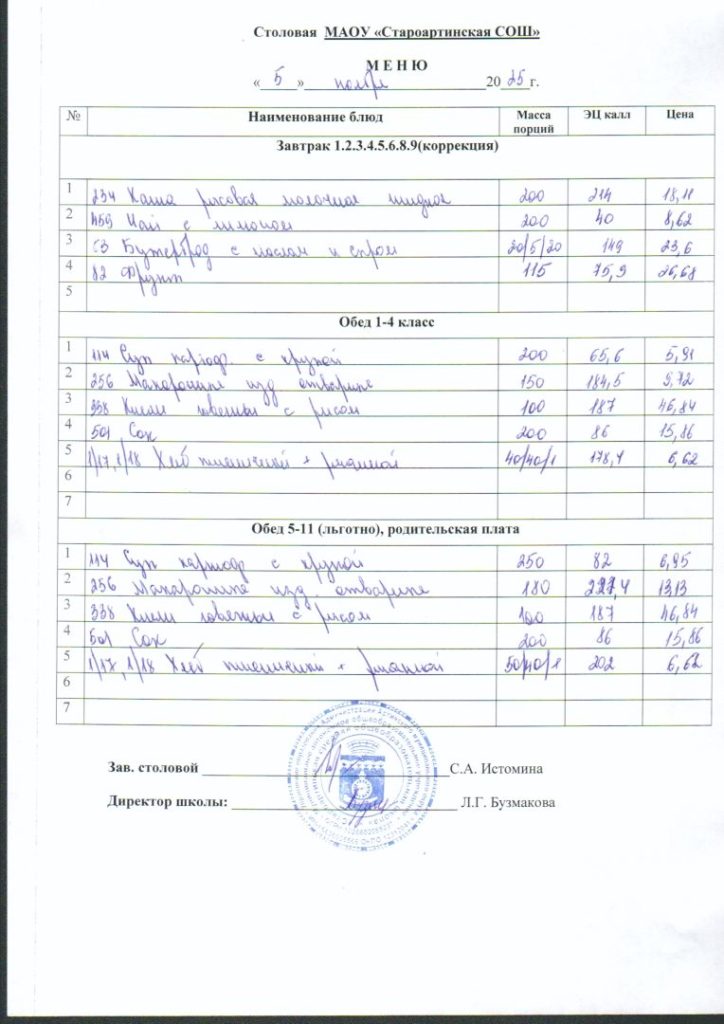 Столовая МАОУ «Староартинская СОШ»
М Е Н Ю
« 5 » ноября 2025 г.
№ Наименование блюд Масса порций ЭЦ калл Цена
Завтрак 1.2.3.4.5.6.8.9(коррекция)
1 234 Каша рисовая молочная жидкая 200 214 18,11
2 459 Чай с лимоном 200 40 8,62
3 53 Бутерброд с маслом и сыром 20/5/20 149 23,6
4 82 Фрукт 115 75,9 26,68
5
Обед 1-4 класс
1 114 Суп картоф. с крупой 200 65,6 5,91
2 256 Макаронные изд отварные 150 184,5 9,72
3 338 говяжьи с рисом 100 187 46,84
4 501 Сок 200 86 15,86
5 1/17, 1/18 Хлеб пшеничный + ржаной 40/40/1 178,4 6,62
6
7
Обед 5-11 (льготно), родительская плата
1 114 Суп картоф с крупой 250 82 6,95
2 256 Макаронные изд. отварные 180 227,4 13,13
3 338 говяжьи с рисом 100 187 46,84
4 501 Сок 200 86 15,86
5 1/17, 1/18 Хлеб пшеничный + ржаной 50/40/1 202 6,62
6
7
Зав. столовой С.А. Истомина
Директор школы: Л.Г. Бузмакова